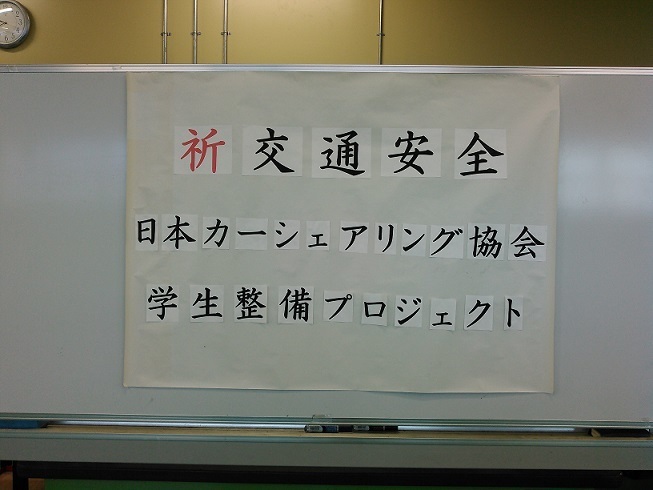 祈交通安全
日本カーシェアリング協会
学生整備プロジェクト